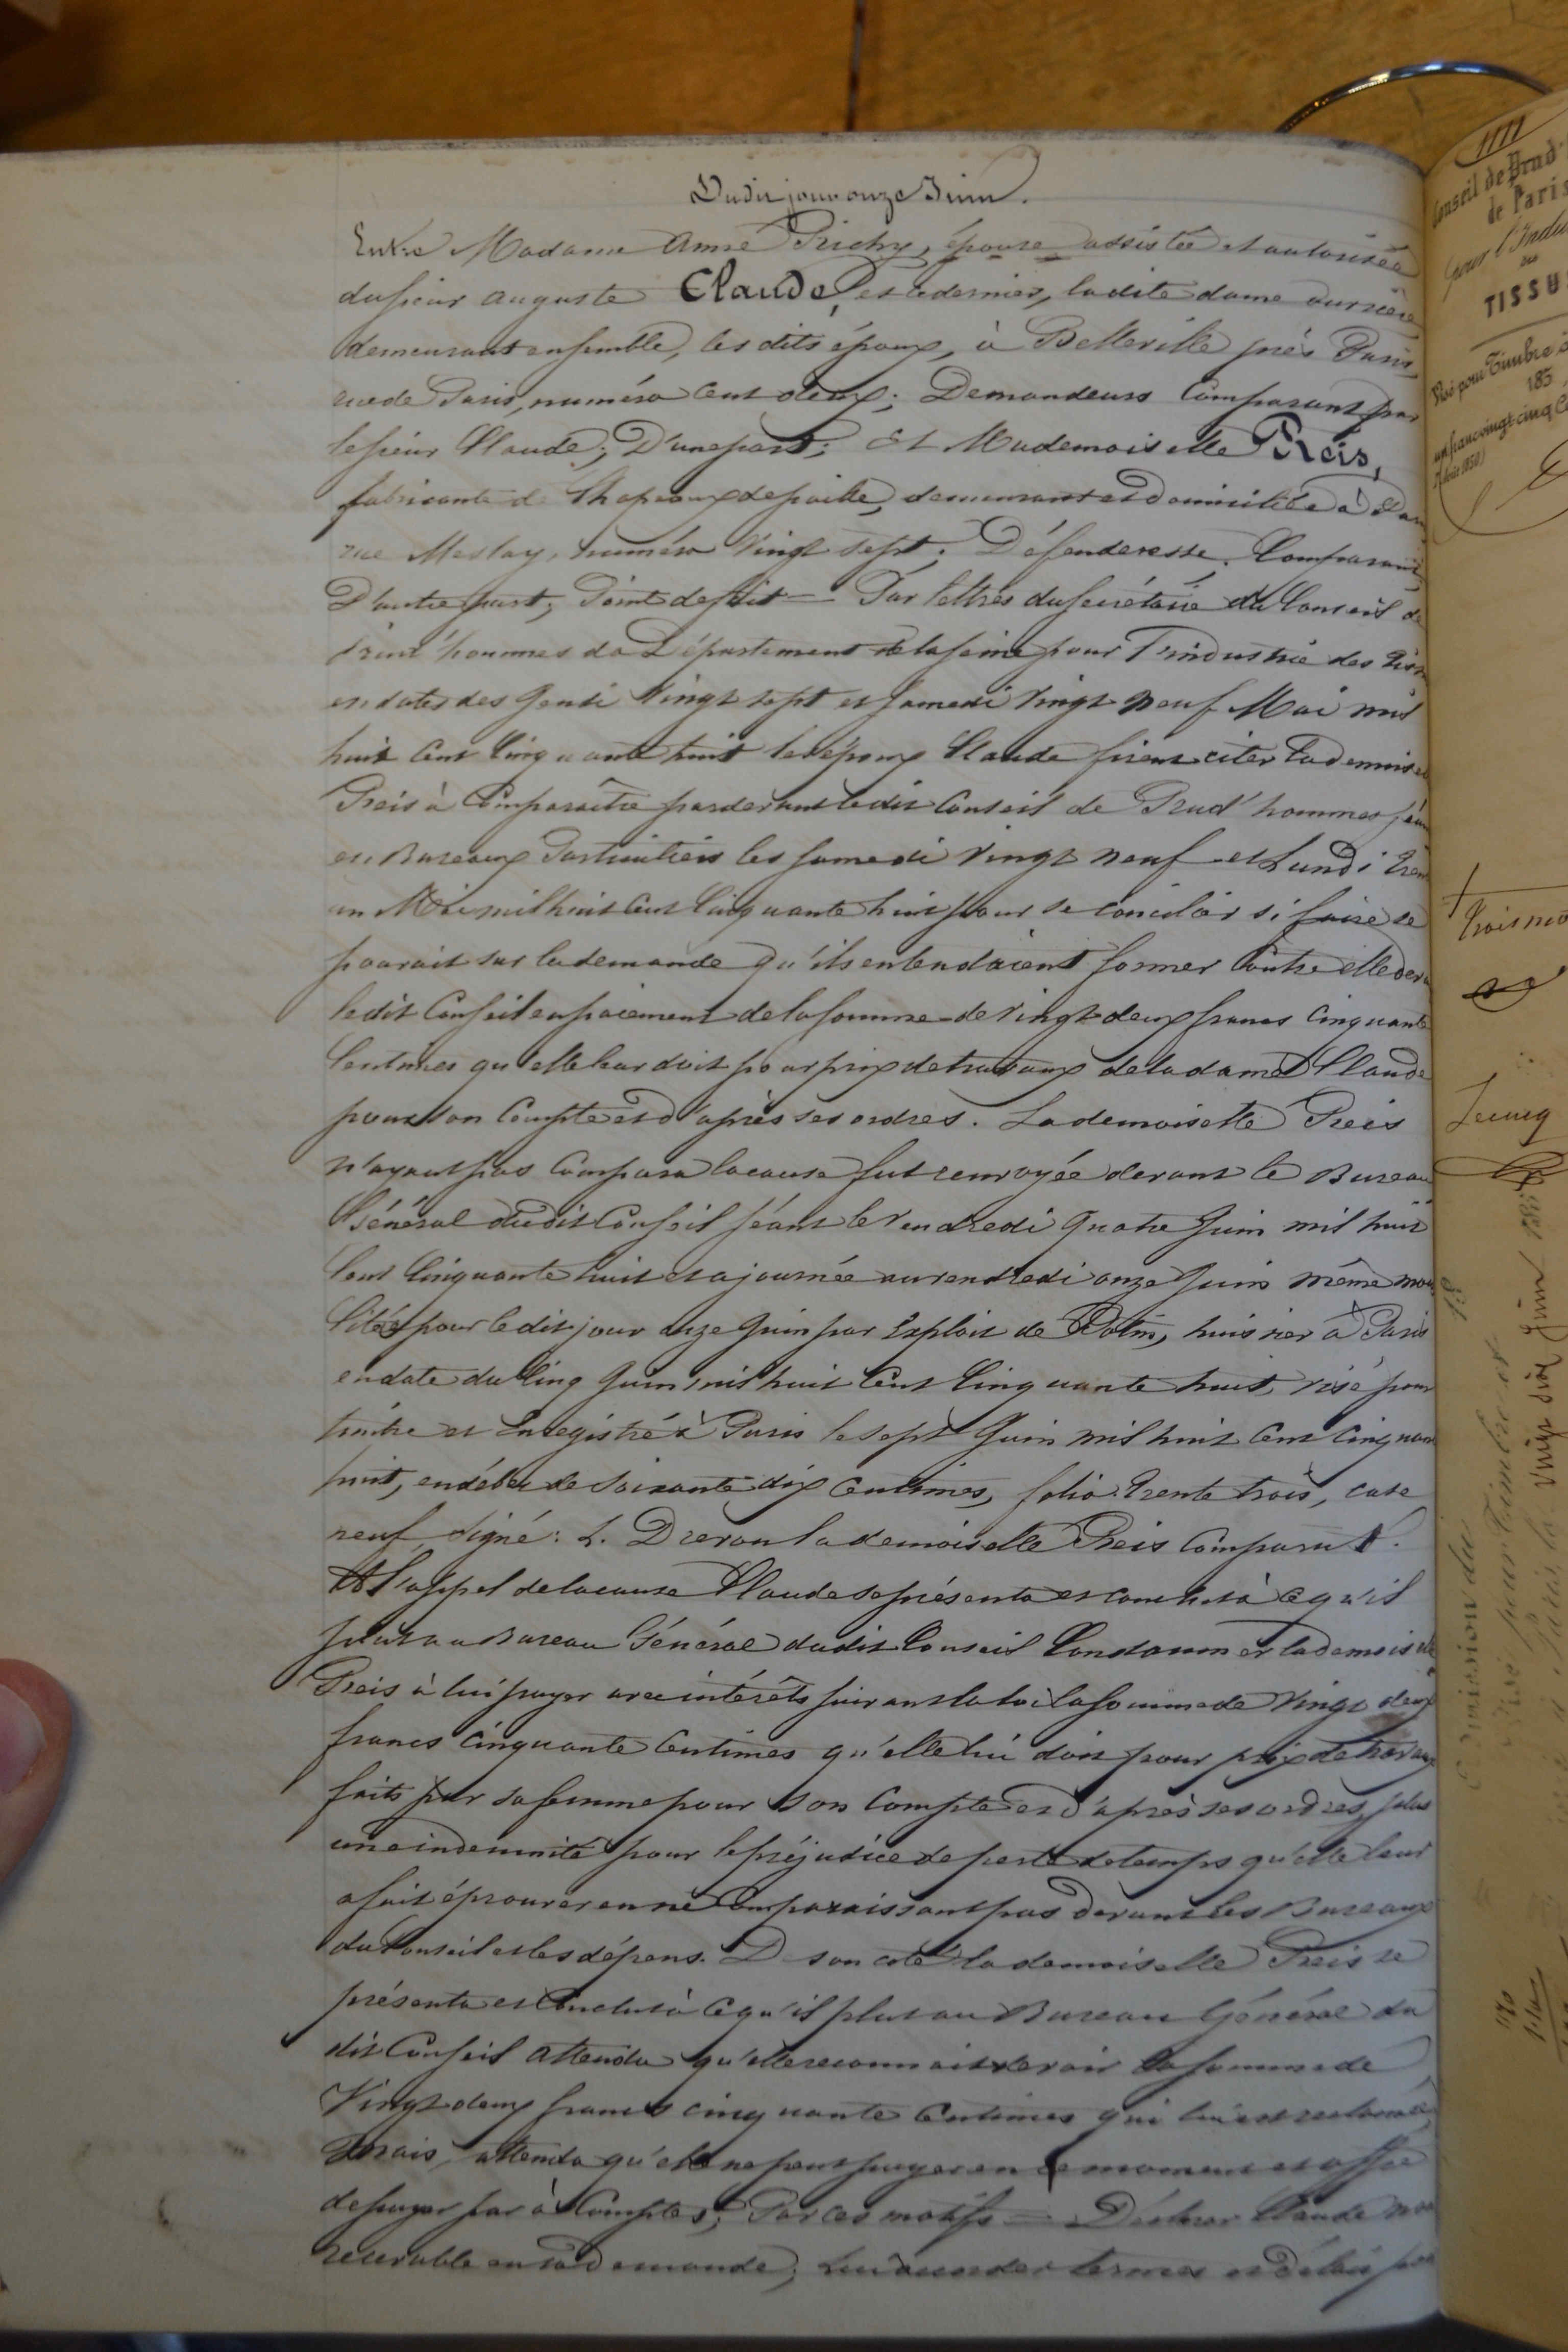 Dudit jour onze Juin.
Entre Madame Anne Prichy, épouse assistée et autorisée
du sieur Auguste Claude, et ce dernier, ladite dame ouvrière
demeurant ensemble, les dits époux, à Belleville près Paris
rue de Paris, numéro cent deux; Demandeurs Comparant par
le sieur Claude; D'une part; Et Mademoiselle Preis,
fabricante de Chapeaux de paille, demeurant et domiciliée à
rue Meslay, numéro vingt sept; Défenderesse, Comparant
D'autre part; Point de fait — Par lettres du secrétaire du Conseil de
Prud'hommes du Département de la Seine pour l'industrie des
en dates des Jeudi vingt sept et Samedi vingt neuf Mai mil
huit cent cinquante huit les époux Claude firent citer la
Preis à Comparaître par devant ledit Conseil de Prud'hommes
en Bureaux Particuliers les samedi vingt neuf et Lundi
un Mai mil huit cent cinquante huit pour se concilier si faire se
pourait sur la demande qu'ils entendaient former contre elle
ledit Conseil en paiement de la somme de vingt deux francs cinquante
Centimes qu'elle leur doit pour prix de travaux de la dame Claude
pour son Compte et d'après ses ordres. La demoiselle Preis
n'ayant pas Comparu la cause fut renvoyée devant le Bureau
Général dudit Conseil séant le vendredi quatre Juin mil huit
cent cinquante huit et ajournée au vendredi onze Juin même mois
Citée pour le dit jour onze Juin par Exploit de huissier à Paris
en date du cinq Juin mil huit cent cinquante huit, visé pour
timbre et Enregistré à Paris le sept Juin mil huit cent
huit, en débet de soixante dix centimes, folio trente trois, case
neuf, signé: la demoiselle Preis Comparut.
A l'appel de la cause Claude se présenta et conclut à ce qu'il
plut au Bureau Général dudit Conseil Condamner la
Preis à lui payer avec intérêts suivant la loi la somme de vingt deux
francs cinquante Centimes qu'elle lui doit pour prix de travaux
faits par sa femme pour son Compte et d'après ses ordres, plus
une indemnité pour le préjudice de perte de temps qu'elle leur
a fait éprouver en ne Comparaissant pas devant les Bureaux
du Conseil et les dépens. De son coté la demoiselle Preis se
présenta et Conclut à ce qu'il plut au Bureau Général du
dit Conseil attendu qu'elle reconnait devoir la somme de
Vingt deux francs cinquante Centimes qui lui est réclamée
Mais, attendu qu'elle ne peut payer en ce moment et offre
de payer par à Comptes; Par ces motifs — Déclarer Claude non
recevable en sa demande;
1111
Conseil de Prud'
de Paris
pour l'Indu
des
TISSU
Visé pour Timbre
185
un franc vingt cinq